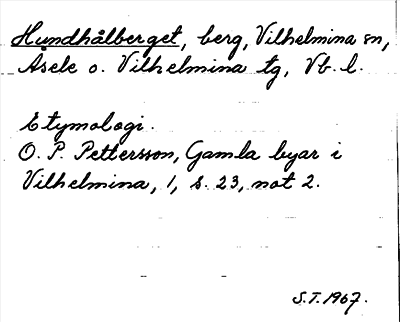 Hundhålberget, berg, Vilhelmina sn,
Åsele o. Vilhelmina tg, Vb. l.
Etymologi.
O. P. Pettersson, Gamla byar i
Vilhelmina, 1, s. 23, not 2.
S.T. 1967.